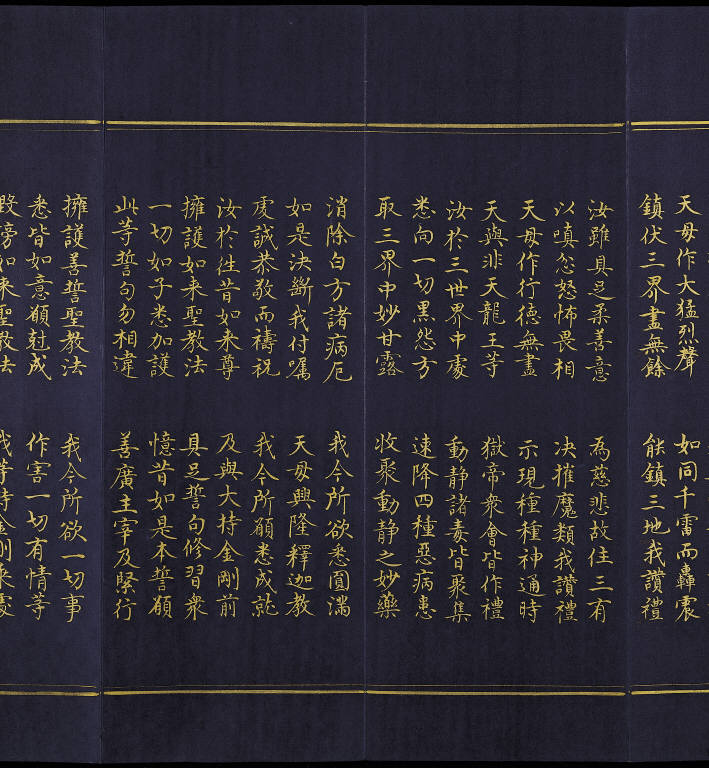 天母作大猛烈聲 如同千雷而轟震
鎮伏三界盡無餘 能鎮三地我讚禮
汝雖具足柔善意 為慈悲故住三有
以嗔忿怒怖畏相 决摧魔類我讚禮
天母作行德無盡 示現種種神通時
天與非天龍王等 獄帝衆會皆作禮
汝於三世界中處 動靜諸毒皆聚集
悉向一切黑怨方 速降四種惡病患
取三界中妙甘露 收聚動靜之妙藥
消除白方諸病厄 我今所欲悉圓滿
如是决斷我付囑 天母興隆釋迦教
虔誠恭敬而禱祝 我今所願悉成就
汝於徃昔如来尊 及與大持金剛前
擁護如来聖教法 具足誓句修習衆
一切如子悉加護 憶昔如是本誓願
此等誓句勿相違 善廣主宰及緊行
擁護善誓聖教法 我今所欲一切事
悉皆如意願尅成 作害一切有情等
毀謗如来聖教法 我等持金剛衆